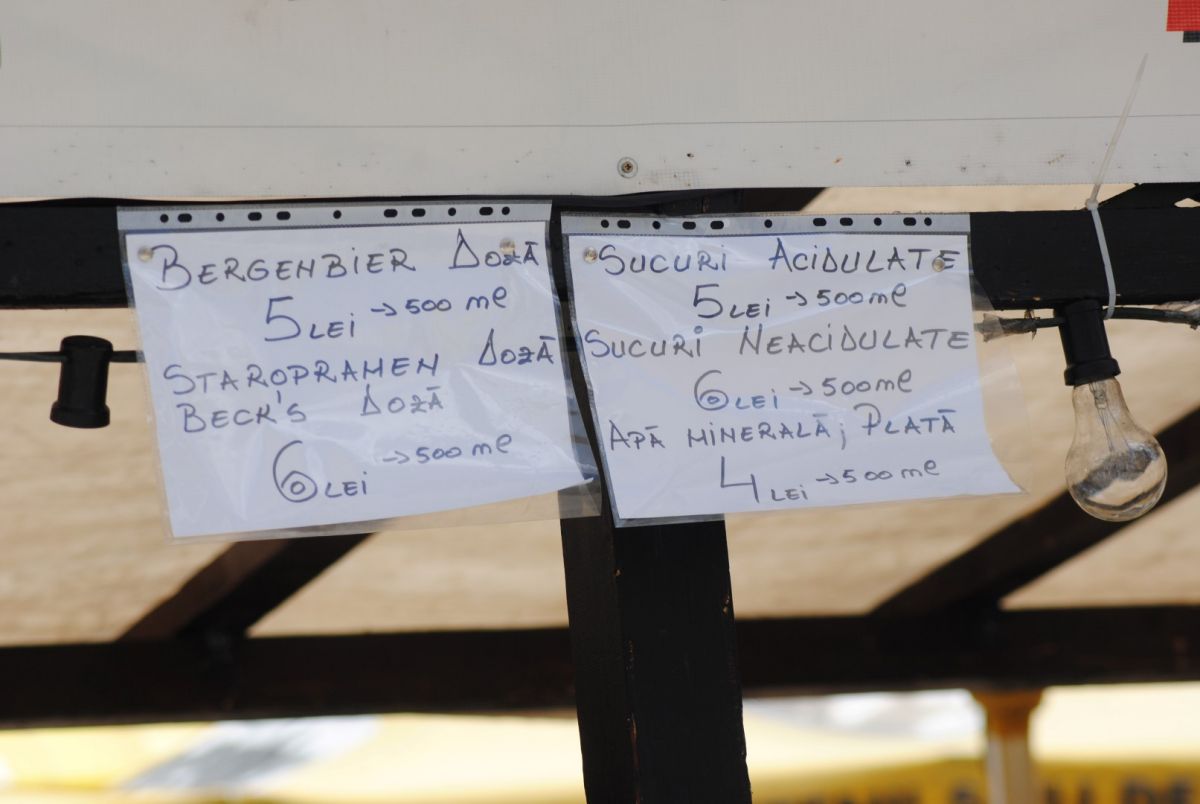 BERGENBIER DOZĂ
5 LEI → 500 ml
STAROPRAMEN DOZĂ
BECK'S DOZĂ
6 LEI → 500 ml
SUCURI ACIDULATE
5 LEI → 500 ml
SUCURI NEACIDULATE
6 LEI → 500 ml
APĂ MINERALĂ; PLATĂ
4 LEI → 500 ml